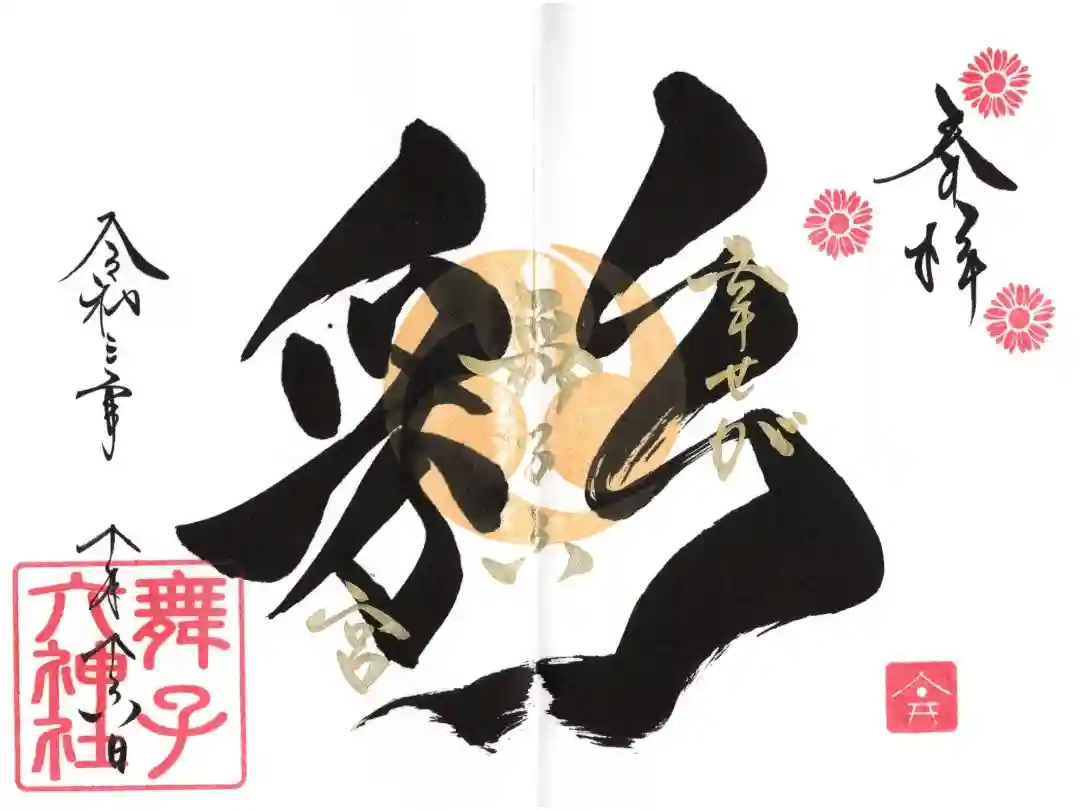 奉拝
幸せが
彩
舞子六
宮
令和三年 十月十六日
舞子
六神社